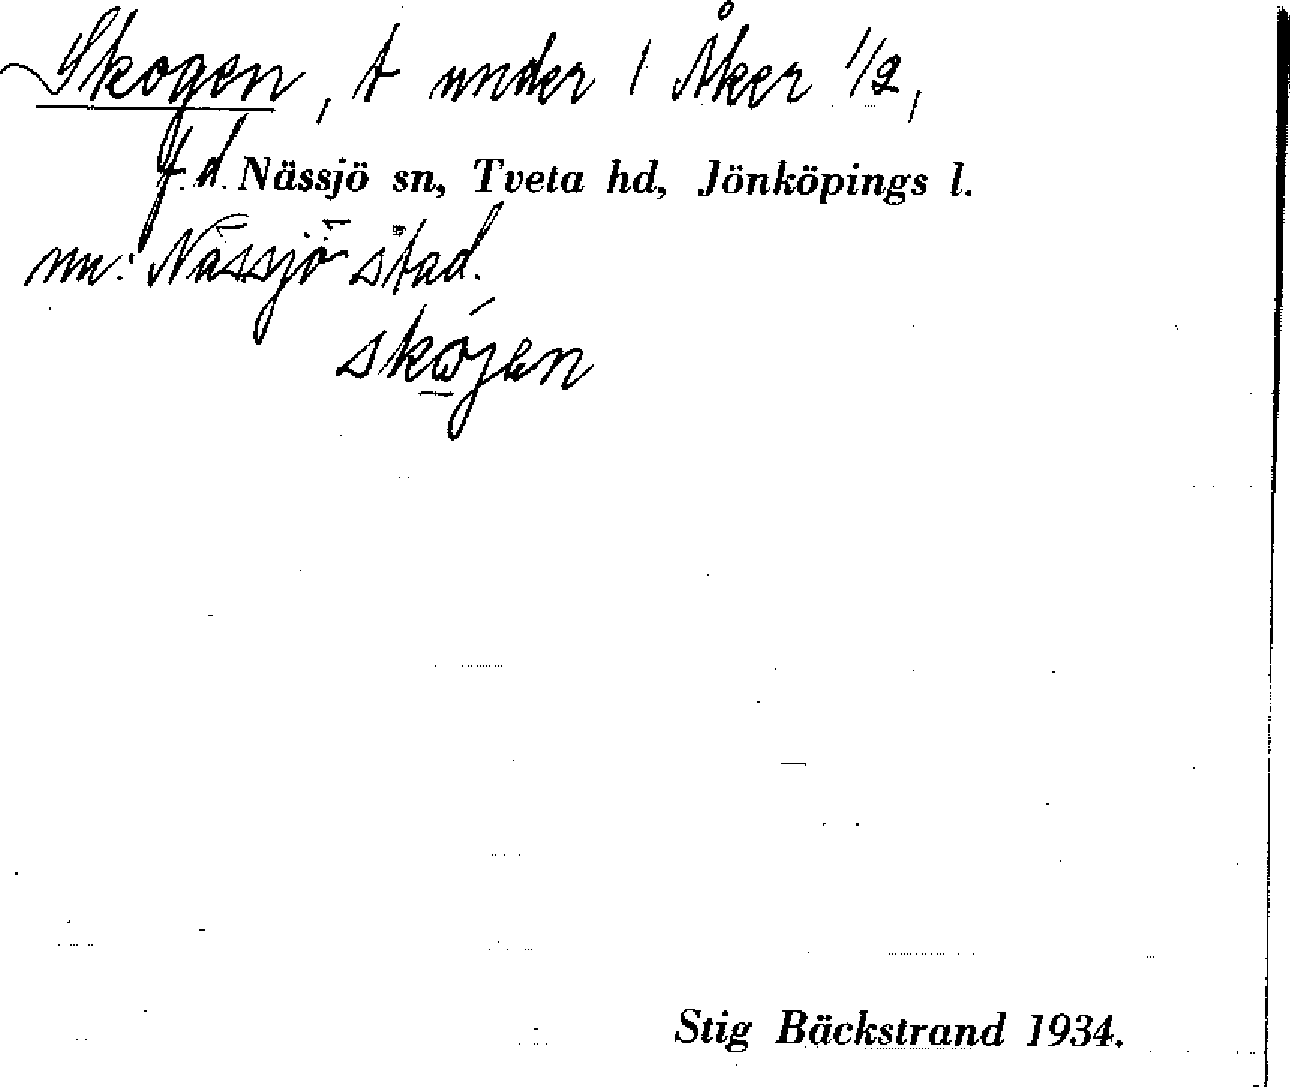 Skogen, t under 1 Åker 1/2,
f.d. Nässjö sn, Tveta hd, Jönköpings l.
nu: Nässjö stad.
skωjen
Stig Bäckstrand 1934.